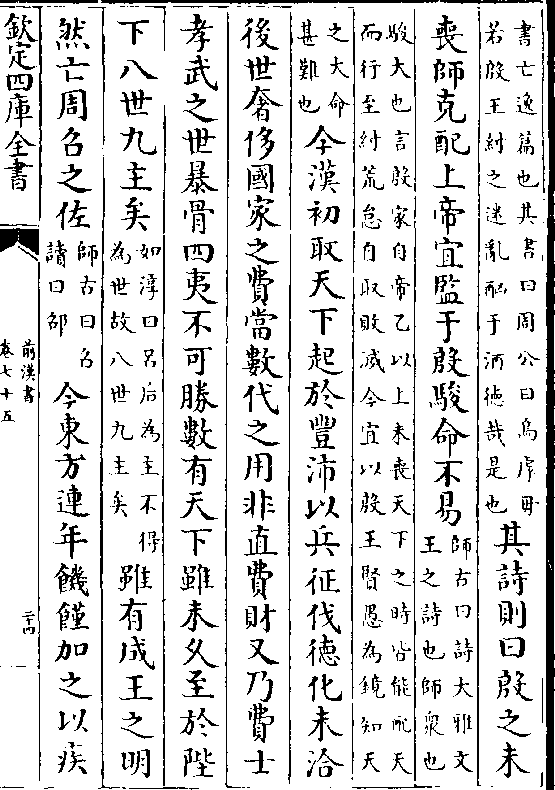 書亡逸篇也其書曰周公曰烏虖毋
若殷王紂之迷亂酗于酒徳哉是也
其詩則曰殷之未
喪師克配上帝宜監于殷駿命不易
師古曰詩大雅文
王之詩也師衆也
駿大也言殷家自帝乙以上未喪天下之時皆能配天
而行至紂荒怠自取敗滅今宜以殷王賢愚為鏡知天
之大命
甚難也
今漢初取天下起於豐沛以兵征伐徳化未洽
後世奢侈國家之費當數代之用非直費財又乃費士
孝武之世暴骨四夷不可勝數有天下雖未久至於陛
下八世九主矣
如淳曰呂后為主不得
為世故八世九主矣
雖有成王之明
然亡周召之佐
師古曰召
讀曰邵
今東方連年饑饉加之以疾
欽定四庫全書
前漢書
卷七十五
二十四